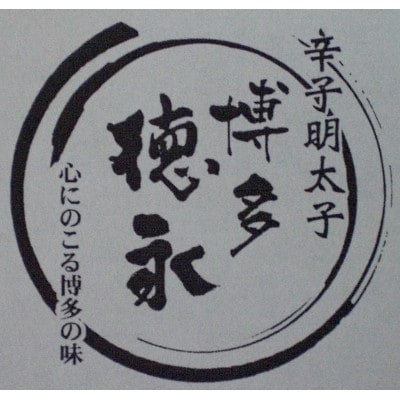 辛子明太子
博多
聴永
心にのこる博多の味